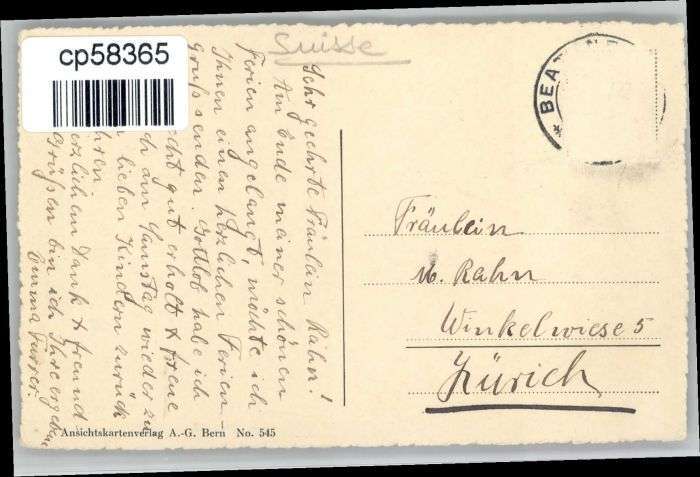 cp58365
Suisse
Sehr geehrte Fräulein Rahn!
Am Ende meiner schönen
Ferien angelangt, möchte ich
Ihnen einen herzlichen Ferien-
gruss senden. Gottlob habe ich
gut erholt & freue
am Samstag wieder zu
lieben Kindern zurück
Dank & freund
Grüßen bin ich Ihre ergebene
Emma Furrer.
BEAT
Fräulein
M. Rahn
Winkelwiese 5
Zürich
Ansichtskartenverlag A.-G. Bern No. 545